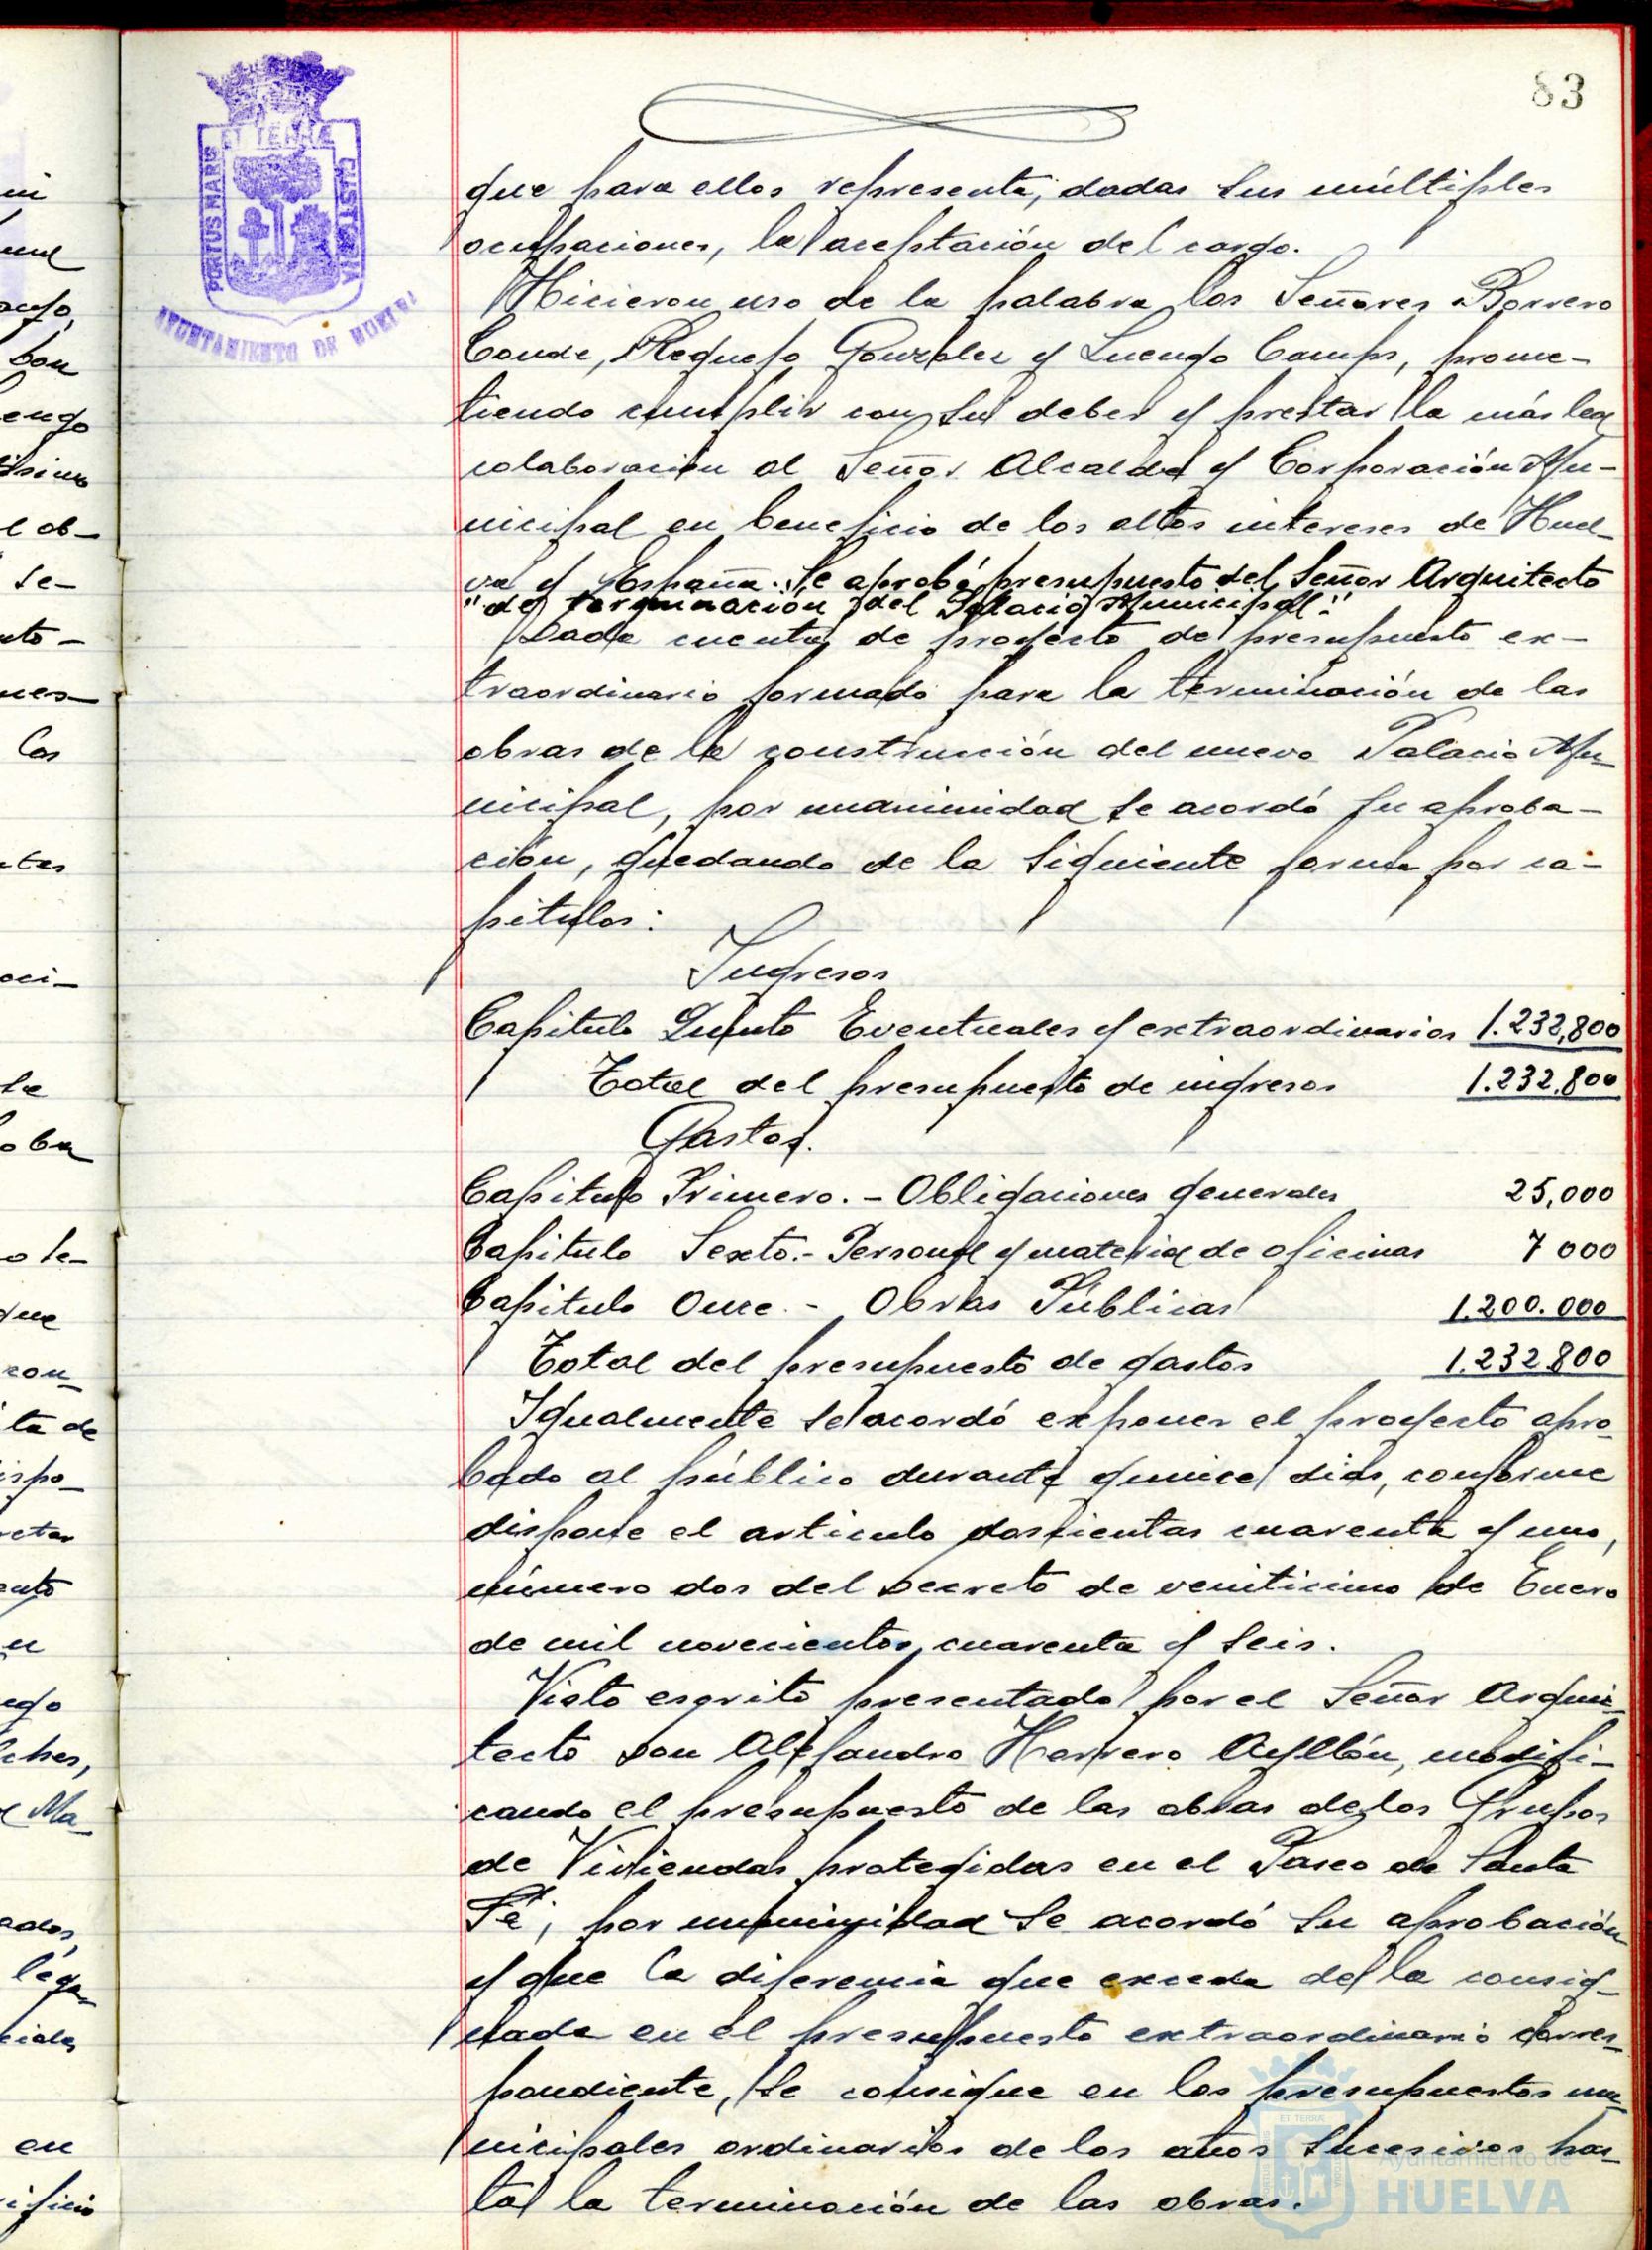 83
ET TERRÆ
PORTUS MARIS
CUSTODIA
AYUNTAMIENTO DE HUELVA
que para ellos representa, dadas sus múltiples
ocupaciones, la aceptación del cargo.
Hicieron uso de la palabra los Señores Borrero
Conde, Requejo González y Luengo Camps, prome-
tiendo cumplir con su deber y prestar la más leal
colaboración al Señor Alcalde y Corporación Mu-
nicipal en beneficio de los altos intereses de Huel-
va y España. Se aprobó presupuesto del Señor Arquitecto
"de terminación del Palacio Municipal."
Dada cuenta de proyecto de presupuesto ex-
traordinario formado para la terminación de las
obras de la construcción del nuevo Palacio Mu-
nicipal, por unanimidad se acordó su aproba-
ción, quedando de la siguiente forma por ca-
pitulos:
Ingresos
Capitulo Quinto Eventuales y extraordinarios 1.232,800
Total del presupuesto de ingresos 1.232.800
Gastos.
Capitulo Primero. - Obligaciones generales 25,000
Capitulo Sexto.- Personal y material de oficinas 7 000
Capitulo Once. - Obras Públicas 1.200.000
Total del presupuesto de gastos 1.232.800
Igualmente se acordó exponer el proyecto apro-
bado al público durante quince dias, conforme
dispone el articulo doscientas cuarenta y uno,
número dos del Decreto de veniticinco de Enero
de mil novecientos cuarenta y seis.
Visto escrito presentado por el Señor Arqui-
tecto Don Alejandro Herrero Ayllón, modifi-
cando el presupuesto de las obras de los Grupos
de Viviendas protegidas en el Paseo de Santa
Fé, por unanimidad se acordó su aprobación
y que la diferencia que exceda de la consig-
nada en el presupuesto extraordinario corres-
pondiente, se consigue en los presupuestos mu-
nicipales ordinarios de los años sucesivos has-
ta la terminación de las obras.
Ayuntamiento de
HUELVA